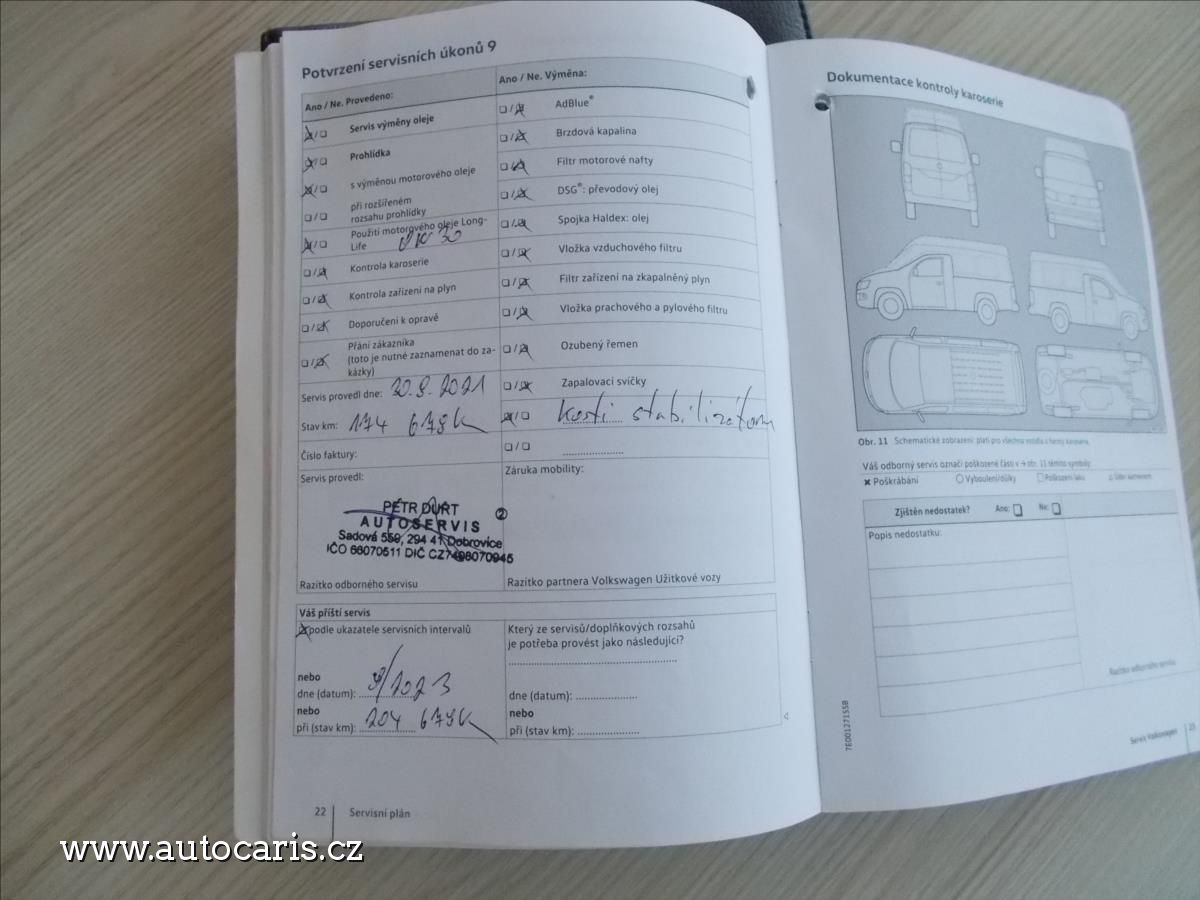 Potvrzení servisních úkonů 9
Ano / Ne. Provedeno:
Servis výměny oleje
Prohlídka
s výměnou motorového oleje
při rozšířeném
rozsahu prohlídky
Použití motorového oleje Long-
Life
Kontrola karoserie
Kontrola zařízení na plyn
Doporučení k opravě
Přání zákazníka
(toto je nutné zaznamenat do za-
kázky)
Servis provedl dne: 30.9.2021
Stav km: 174 678K
Číslo faktury:
Servis provedl:
PETR DURT
AUTOSERVIS
Sadová 559, 294 41 Dobrovice
IČO 66070511 DIČ CZ7408070945
2
Razítko odborného servisu
Ano / Ne. Výměna:
AdBlue®
Brzdová kapalina
Filtr motorové nafty
DSG®: převodový olej
Spojka Haldex: olej
Vložka vzduchového filtru
Filtr zařízení na zkapalněný plyn
Vložka prachového a pylového filtru
Ozubený řemen
Zapalovací svíčky
kosti stabilizátoru
Záruka mobility:
Razítko partnera Volkswagen Užitkové vozy
Váš příští servis
podle ukazatele servisních intervalů
nebo
dne (datum): 9/2023
nebo
při (stav km): 204 678K
Který ze servisů/doplňkových rozsahů
je potřeba provést jako následující?
dne (datum):
nebo
při (stav km):
22 Servisní plán
Dokumentace kontroly karoserie
Obr. 11 Schematické zobrazení: platí pro všechna vozidla a formy karoserie.
Váš odborný servis označí poškozené části v → obr. 11 těmito symboly:
Poškrábání Vyboulení/důlky Poškození laku Úder kamenem
Zjištěn nedostatek? Ano: Ne:
Popis nedostatku:
Razítko odborného servisu
7E0012715SB
Servis Volkswagen 23
www.autocaris.cz